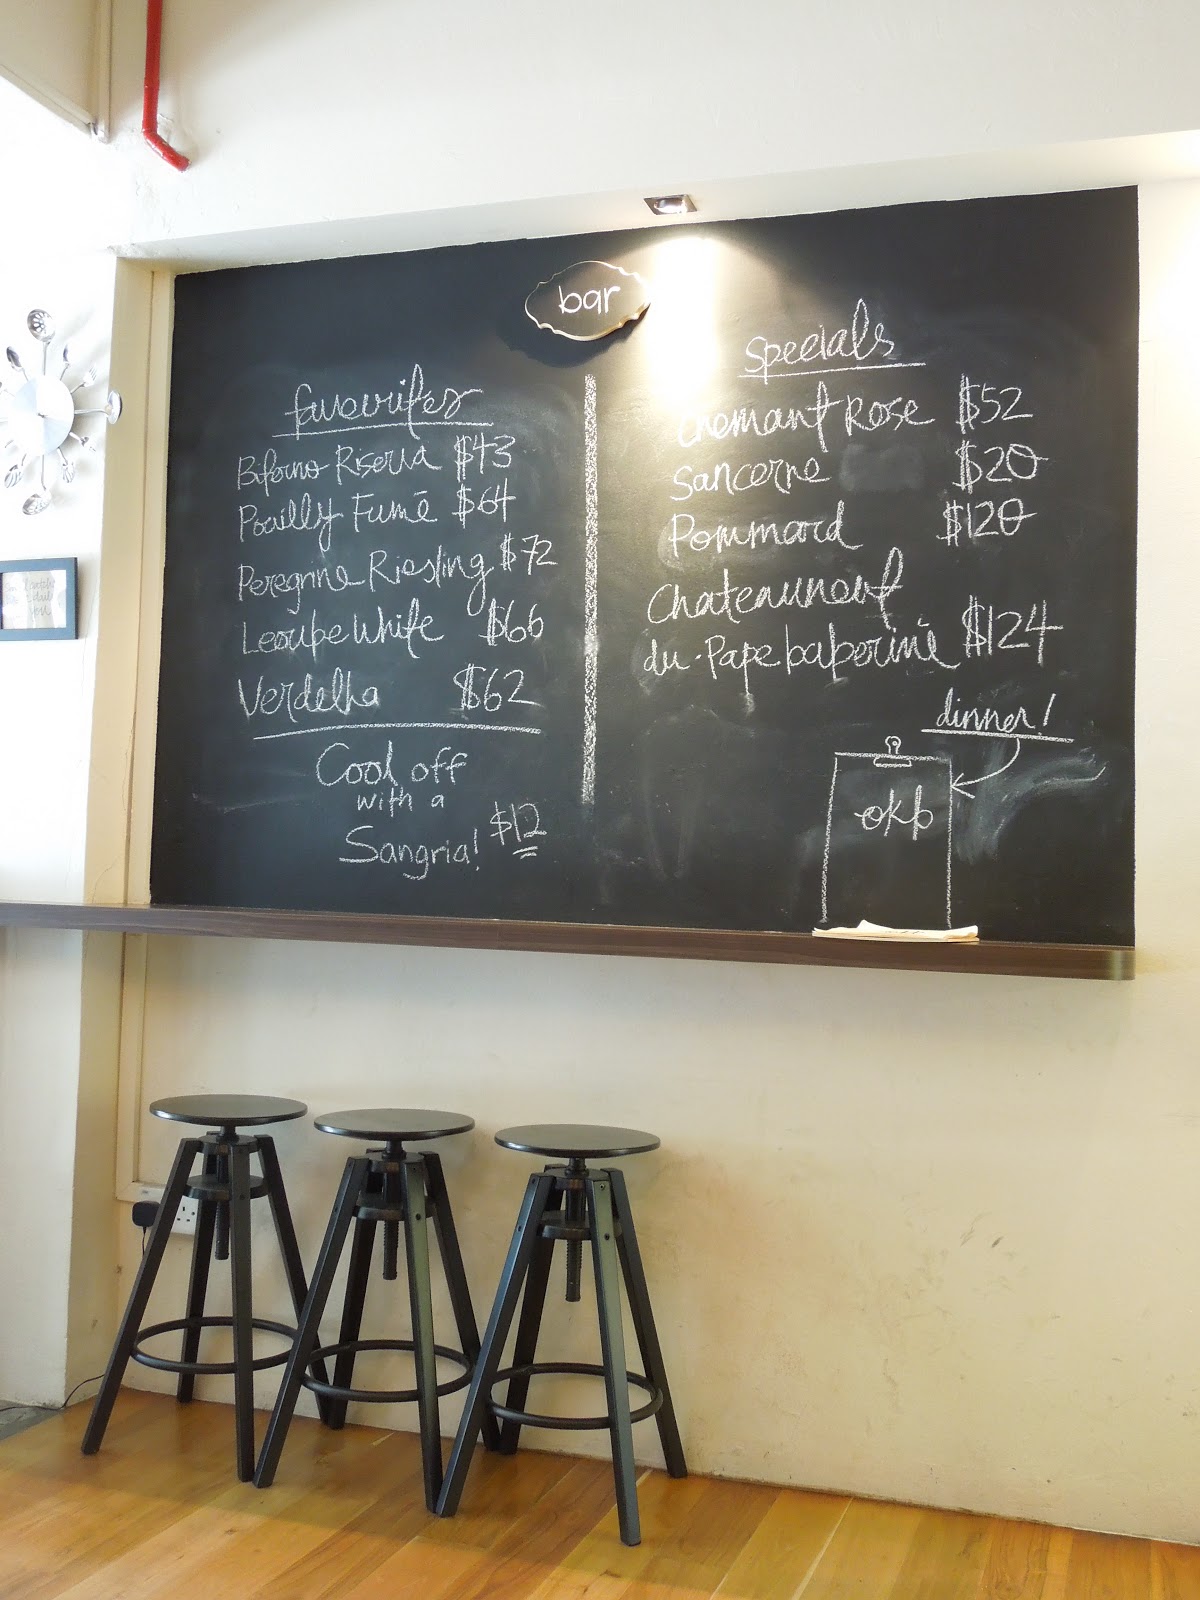 bar
favourites
Biferno Riserva $43
Pouilly Fumē $64
Peregrine Riesling $72
Leoube White $66
Verdelha $62
Cool off
with a
Sangria! $12
specials
Cremant Rose $52
Sancerne $20
Pommard $120
Chateauneuf
du-Pape baperinē $124
dinner!
okb